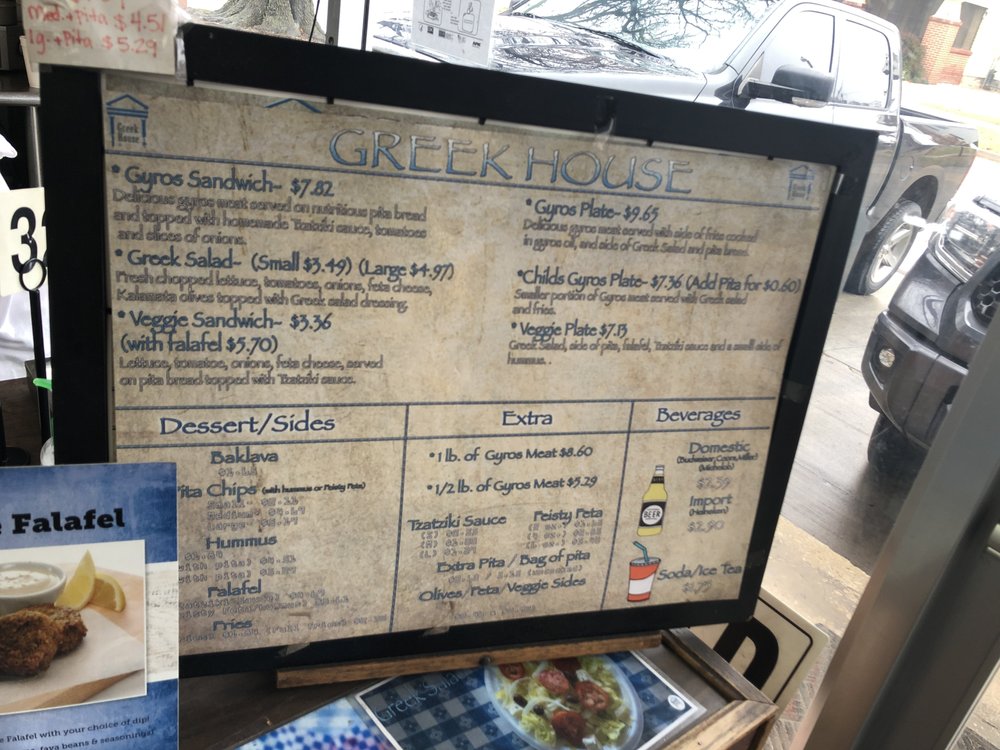 med.+pita $4.51
lg-+Pita $5.29
Greek
House
GREEK HOUSE
* Gyros Sandwich~ $7.82
Delicious gyros meat served on nutritious pita bread
and topped with homemade Tzatziki sauce, tomatoes
and slices of onions.
* Greek Salad~ (Small $3.49) (Large $4.97)
Fresh chopped lettuce, tomatoes, onions, feta cheese,
Kalamata olives topped with Greek salad dressing.
* Veggie Sandwich~ $3.36
(with falafel $5.70)
Lettuce, tomatoes, onions, feta cheese, served
on pita bread topped with Tzatziki sauce.
* Gyros Plate~ $9.65
Delicious gyros meat served with side of fries cooked
in gyros oil, and side of Greek Salad and pita bread.
*Childs Gyros Plate~ $7.36 (Add Pita for $0.60)
Smaller portion of Gyros meat served with Greek salad
and fries.
* Veggie Plate $7.13
Greek Salad, side of pita, falafel, Tzatziki sauce and a small side of
hummus. .
Dessert/Sides
Baklava
ita Chips (with hummus or Feisty Feta)
Hummus
Falafel
Fries
Extra
*1 lb. of Gyros Meat $8.60
*1/2 lb. of Gyros Meat $5.29
Tzatziki Sauce
Feisty Feta
Extra Pita / Bag of pita
Olives/Feta/Veggie Sides
Beverages
Domestic
(Budweiser, Coors, Miller)
(Michelob)
$2.39
Import
(Heineken)
$2.90
BEER
Soda/Ice Tea
$1.75
3
e Falafel
e Falafel with your choice of dip!
fava beans & seasonings!
Greek Salad